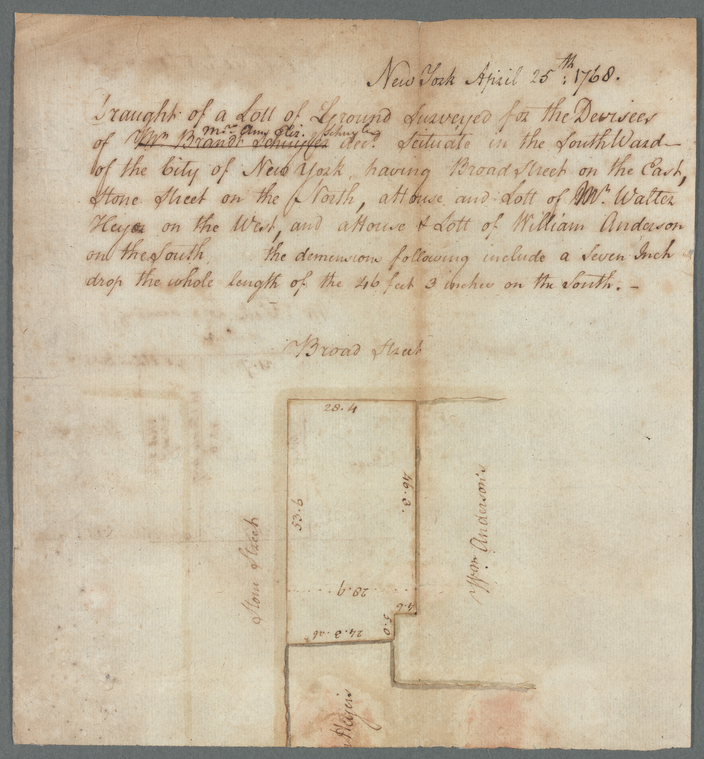 New York April 25th: 1768.
Draught of a Lott of Ground Surveyed for the Devisees
Mrs. Amy Eliz. Schuyler
of Mr Brandt Schuyler decd. Scituate in the South Ward
of the City of New York, having Broad Street on the East,
Stone Street on the North, a House and Lott of Mr. Walter
Heyer on the West, and a House & Lott of William Anderson
on the South the demensions following include a Seven Inch
drop the whole length of the 46 feet 3 inches on the South. –
Broad Street
28.4
53.6
46.3.
Stone Street
Wm. Anderson's
28.9
4.6
5.0
24.3
Heyers